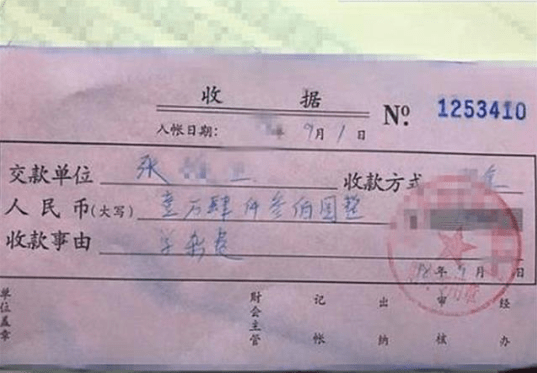 收 据
Nº 1253410
入帐日期: 年 9月1日
交款单位 张 收款方式
人民币(大写) 壹万肆仟叁佰圆整
收款事由 学杂费
年 月 日
单位盖章 财会主管 记帐 出纳 审核 经办